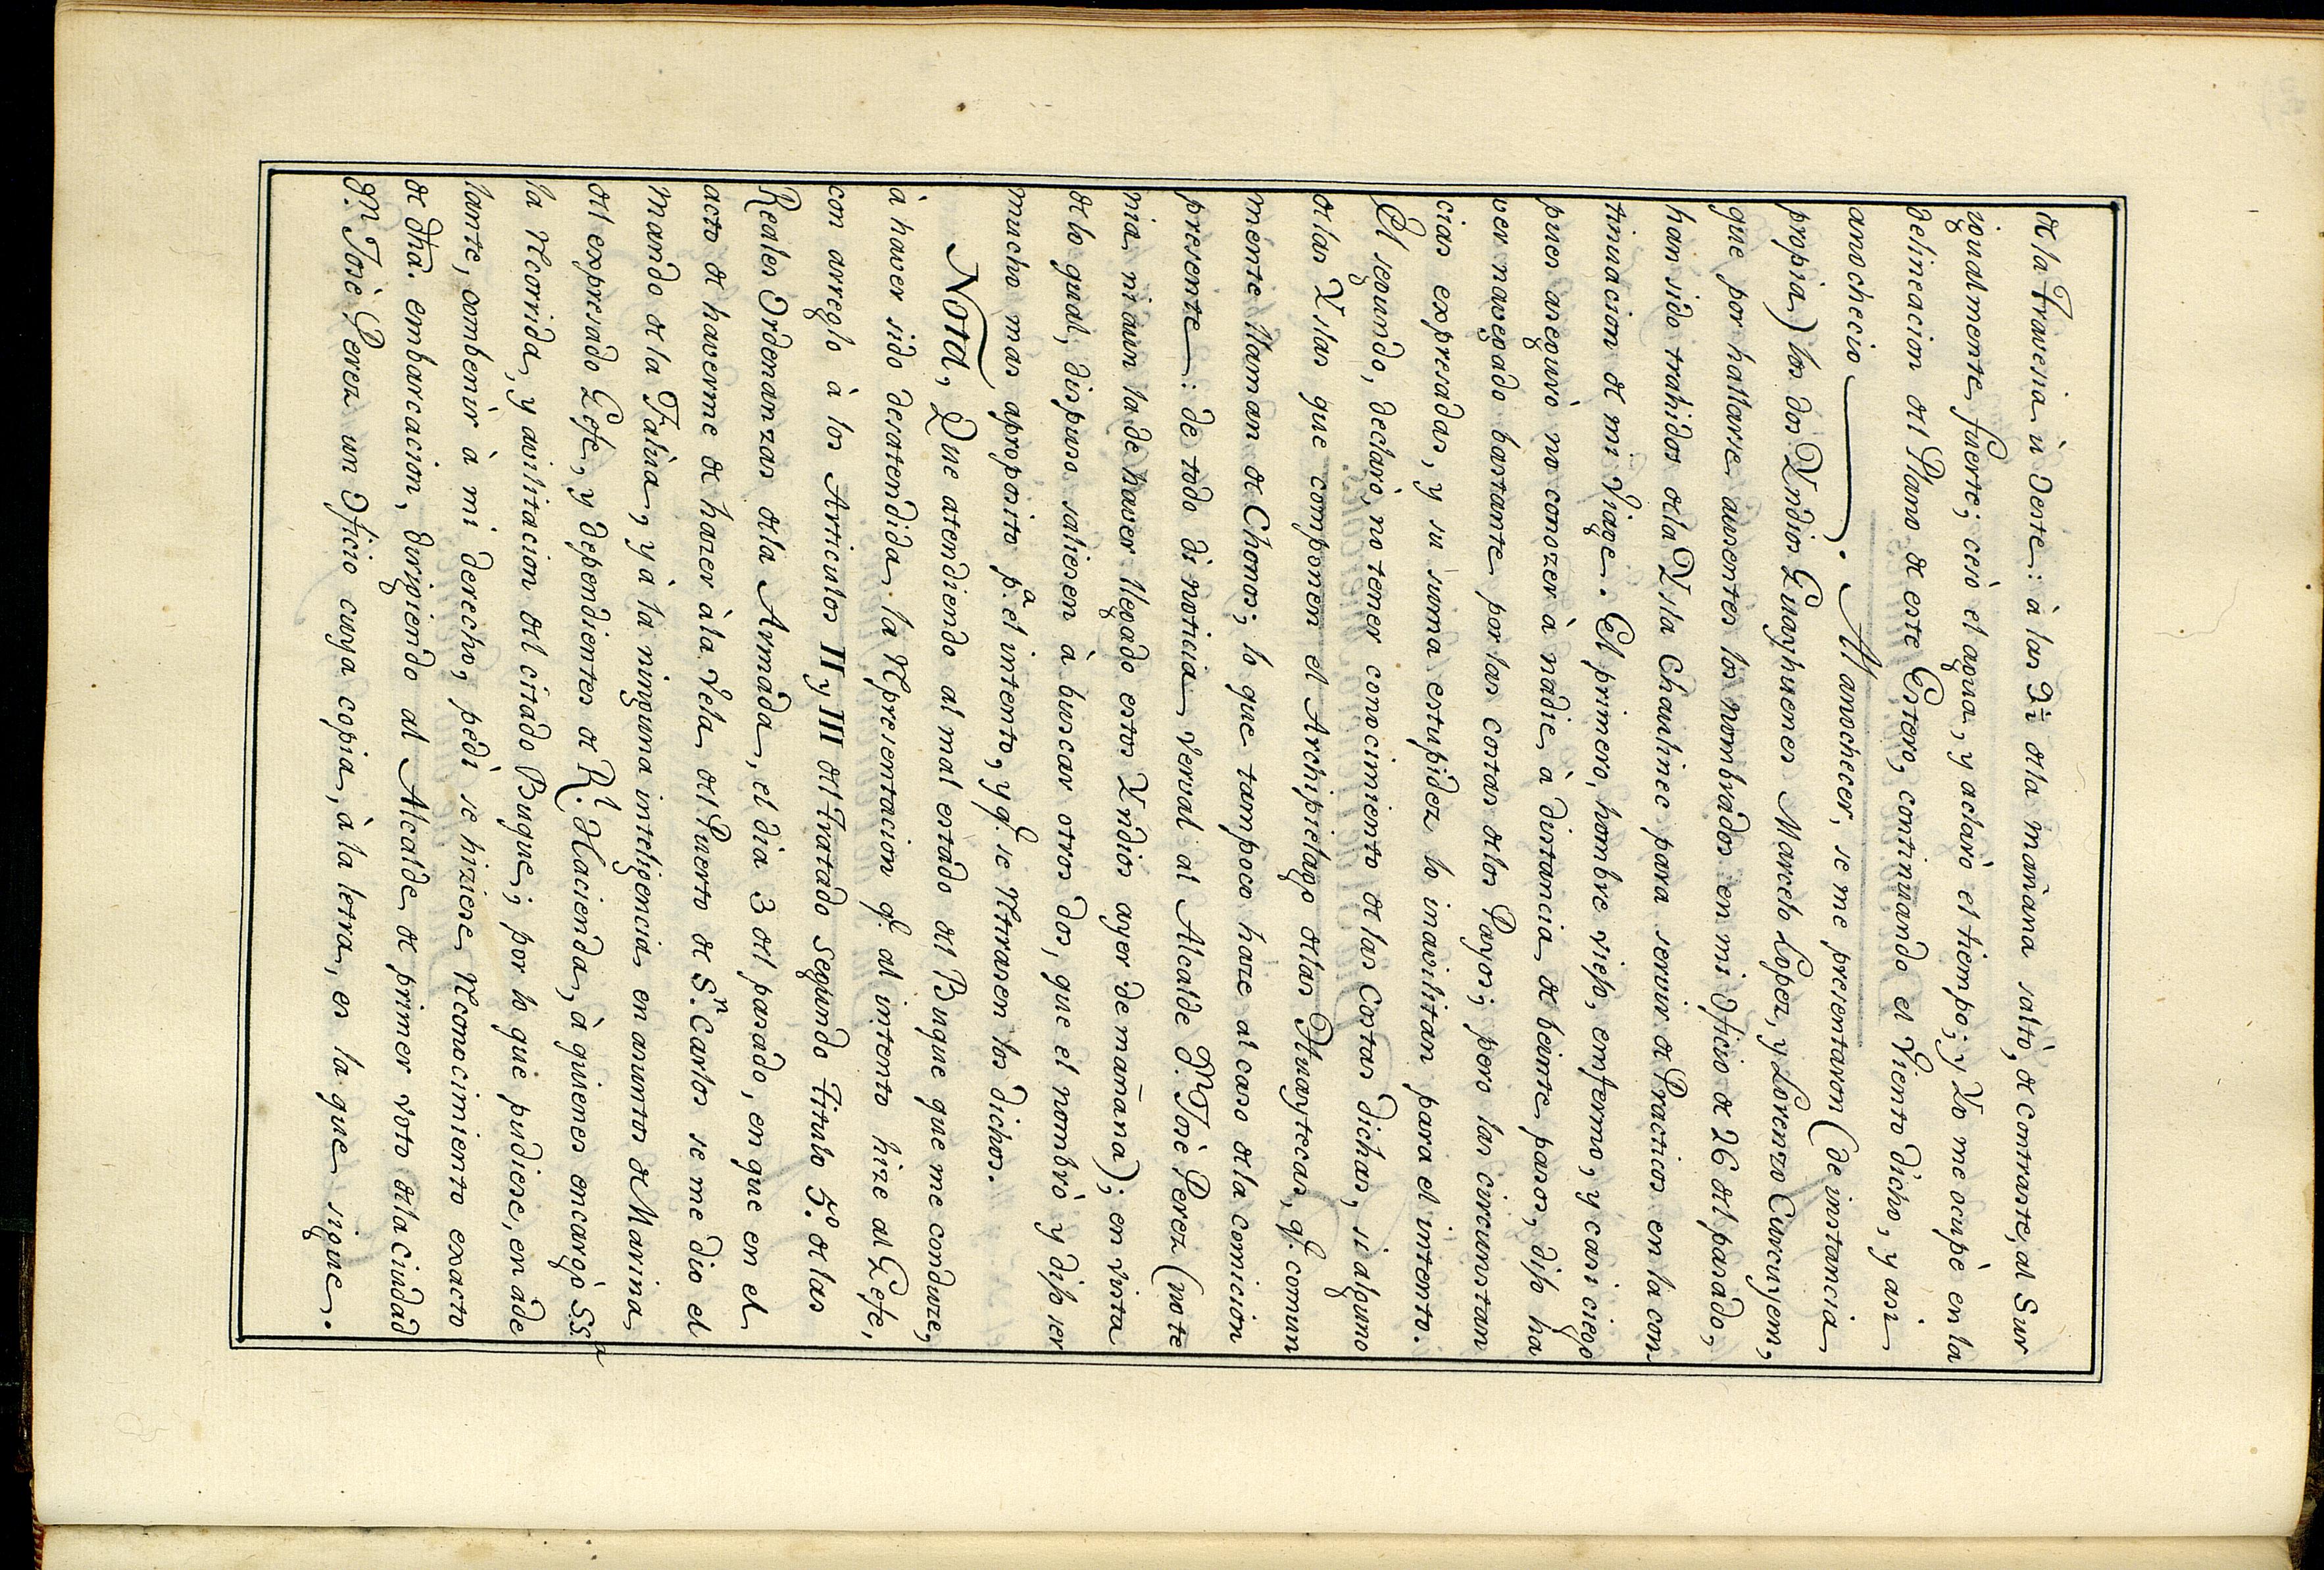 de la Travesia ù Oeste: à las 9½ de la mañana saltò, de contraste, al Sur
igualmente fuerte; cesò el agua, y aclarò el tiempo; y Yo me ocupè en la
delineacion del Plano de este Estero, continuando el Viento dicho, y asi
anochecio. Al anochecer, se me presentaron (de instancia
propia) los dos Yndios Guayhuenes Marcelo Lopez, y Lorenzo Curcuyem,
que por hallarse ausentes los nombrados en mi Oficio de 26 del pasado,
han sido trahidos de la Ysla Chaulinec para servir de Practicos en la con
tinuacion de mi Viage. El primero, hombre viejo, enfermo, y casi ciego
pues asegurò no conozer à nadie, à distancia de beinte pasos, dijo ha
ver navegado bastante por las costas de los Payos; pero las circunstan
cias expresadas, y su suma estupidez lo inavilitan para el intento.
El segundo, declarò, no tener conocimiento de las Costas dichas, si alguno
de las Yslas que componen el Archipielago de las Huaytecas, q.e comun
mente llaman de Chonos; lo que tampoco haze al caso de la comicion
presente: de todo dì noticia verval al Alcalde d.n Josè Perez (no te
nia ni aun la de haver llegado estos Yndios ayer de mañana); en vista
de lo qual, dispuso saliesen à buscar otros dos, que el nombrò y dijo ser
mucho mas aproposito p.a el intento, y q.e se retirasen los dichos.
Nota, Que atendiendo al mal estado del Buque que me conduze,
à haver sido desatendida la representacion q.e al intento hize al Gefe,
con arreglo à los Articulos II y III del tratado segundo titulo 5.o de las
Reales Ordenanzas de la Armada, el dia 3 del pasado, en que en el
acto de haverme de hazer à la Vela del Puerto de S.n Carlos se me dio el
mando de la Falùa, y à la ninguna inteligencia en asuntos de Marina
del expresado Gefe, y dependientes de R.l Hacienda, à quienes encargò SS.a
la recorrida, y avilitacion del citado Buque; por lo que pudiese, en àde
lante, combenir à mi derecho, pedì se hiziese reconocimiento exacto
de dha. embarcacion, dirigiendo al Alcalde de primer voto de la Ciudad
d.n Josè Perez un Oficio cuya copia, à la letra, es la que sigue.